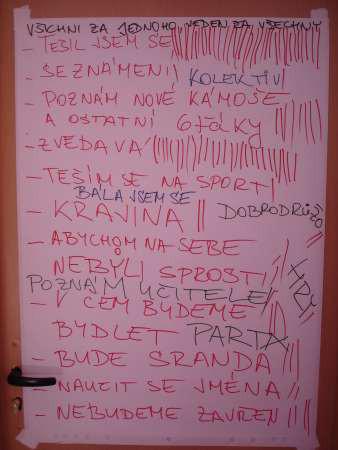 VŠICHNI ZA JEDNOHO, JEDEN ZA VŠECHNY
– TĚŠIL JSEM SE
– SEZNÁMENI KOLEKTIV
– POZNÁM NOVÉ KÁMOŠE
A OSTATNÍ
– ZVĚDAVÁ
– TĚŠÍM SE NA SPORT
BÁLA JSEM SE
– KRAJINA DOBRODRŮŽO
– ABYCHOM NA SEBE
NEBYLI SPROSTÍ
POZNÁM UČITELE HRY
– V ČEM BUDEME
BYDLET PARTA
– BUDE SRANDA
– NAUČIT SE JMÉNA
– NEBUDEME ZAVŘEN